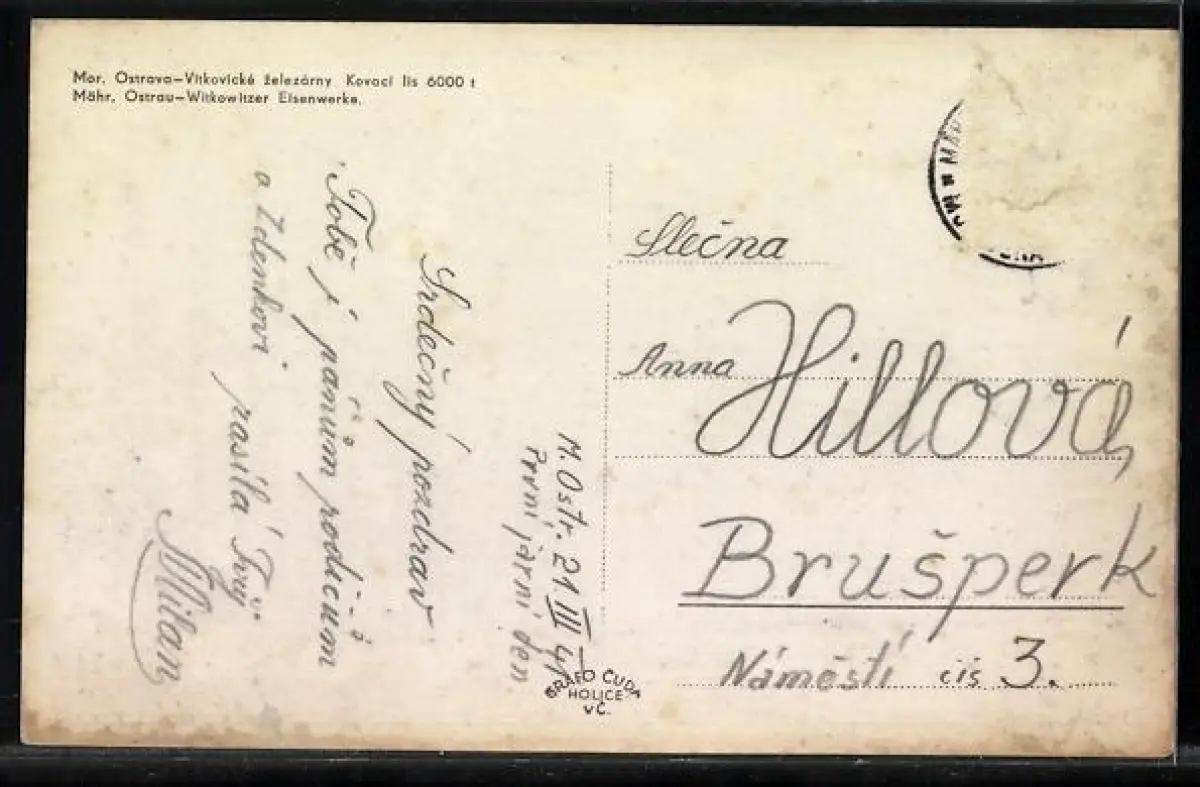 Mor. Ostrava—Vítkovické železárny Kovací lis 6000 t
Mähr. Ostrau—Witkowitzer Eisenwerke.
M. Ostr. 21 III 41
První jarní den
Srdečný pozdrav
Tobě i pánům rodičům
a Zdenkovi posílá Tvůj
Milan
Slečna
Anna Hillová,
Brušperk
Náměstí čís 3.
GRAFO ČUDA
HOLICE
v Č.